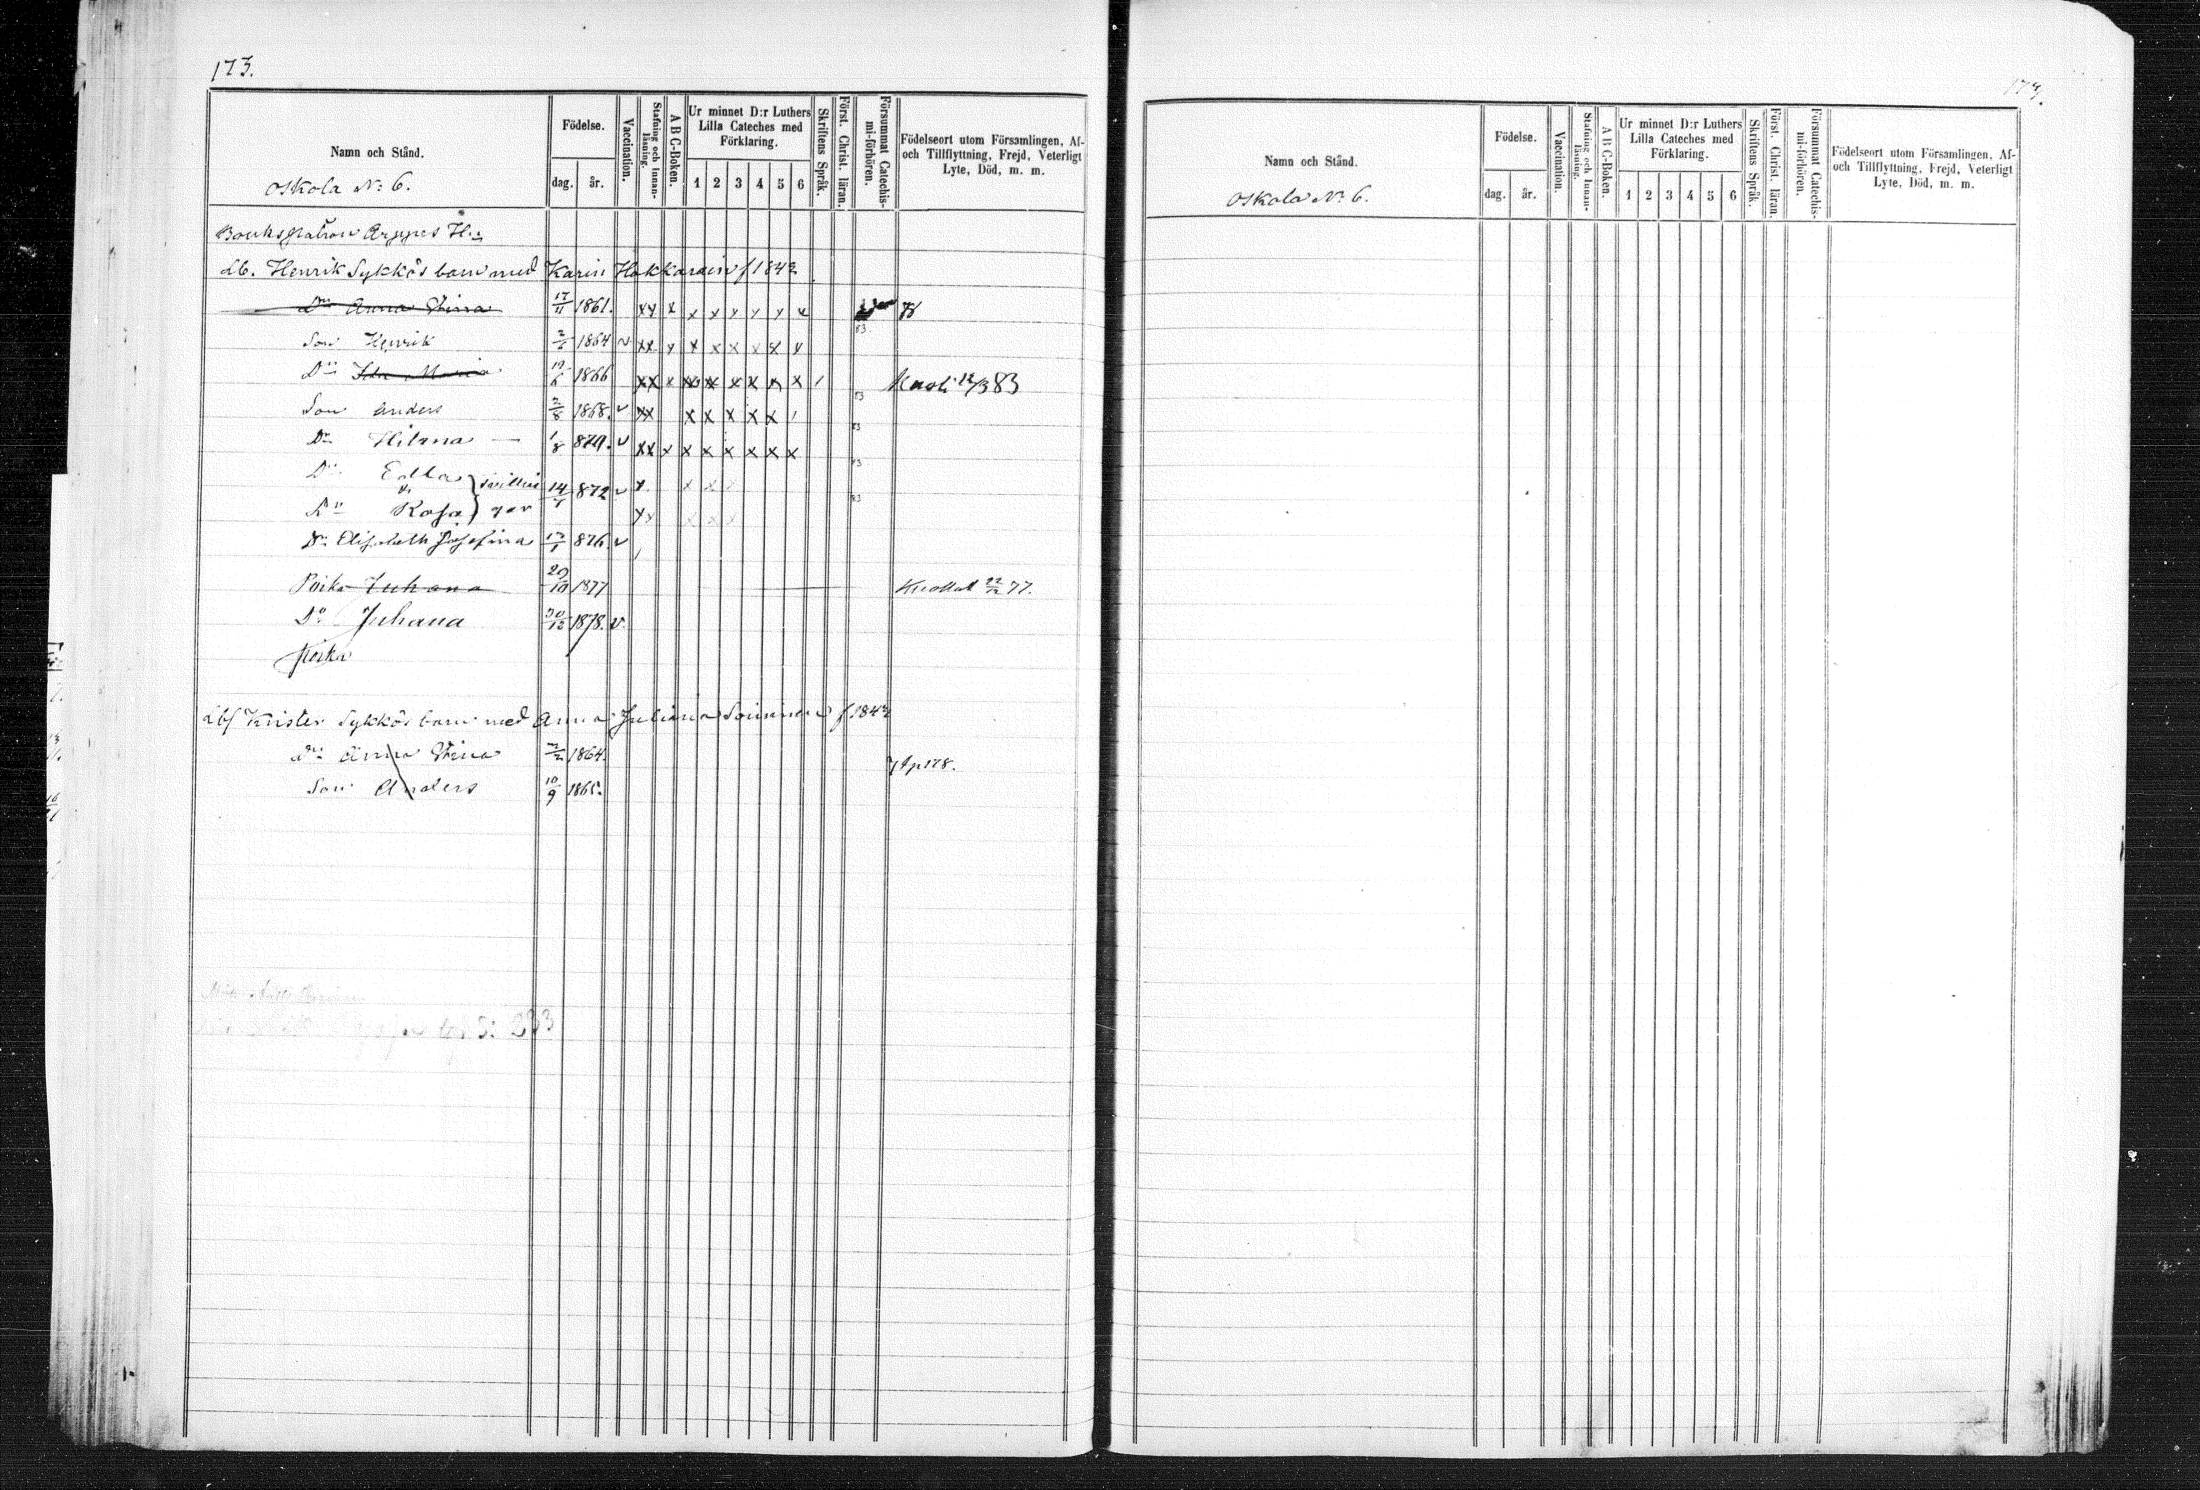 173.
Namn och Stånd.
Födelse.
dag. år.
Vaccination.
Stafning och Innanläsning.
A B C-Boken.
Ur minnet D:r Luthers Lilla Cateches med Förklaring.
1 2 3 4 5 6
Skriftens Språk.
Först. Christ. läran.
Försummat Catechismi-förhören.
Födelseort utom Församlingen, Af- och Tillflyttning, Frejd, Veterligt Lyte, Död, m. m.
Oskola No 6.
Bruks patron Arppes H:
Lb. Henrik Sykkös barn med Karin Hakkarain f 1842
Dr Anna Stina 17/11 1861. xx x x x x x x x
Son Henrik 2/6 1864 v xx x x x x x x x 83
Dr Ida Maria 19/6 1866 xx x xx x x x x x 83 Kuoli 12/3 83
Son Anders 2/8 1868. v xx x x x x x 83
Dr Hilma 1/8 870. v xx x x x x x x x 83
Dr Edla
tvillin
14/7 872 v x x x 83
gar
Dr Rosa xx x x x
Dr Elisabeth Josefina 17/1 876. v
Poika Juhana 29/10 1877 Kuollut 22/12 77.
Do Juhana 30/12 1878. v.
Poika
Lbf Krister Sykkös barn med Anna Juliana Soininen f 1842
Dr Anna Stina 2/2 1864.
Son Anders 10/9 1865.
S: 233
Namn och Stånd.
Födelse.
dag. år.
Vaccination.
Stafning och Innanläsning.
A B C-Boken.
Ur minnet D:r Luthers Lilla Cateches med Förklaring.
1 2 3 4 5 6
Skriftens Språk.
Först. Christ. läran.
Försummat Catechismi-förhören.
Födelseort utom Församlingen, Af- och Tillflyttning, Frejd, Veterligt Lyte, Död, m. m.
Oskola No 6.